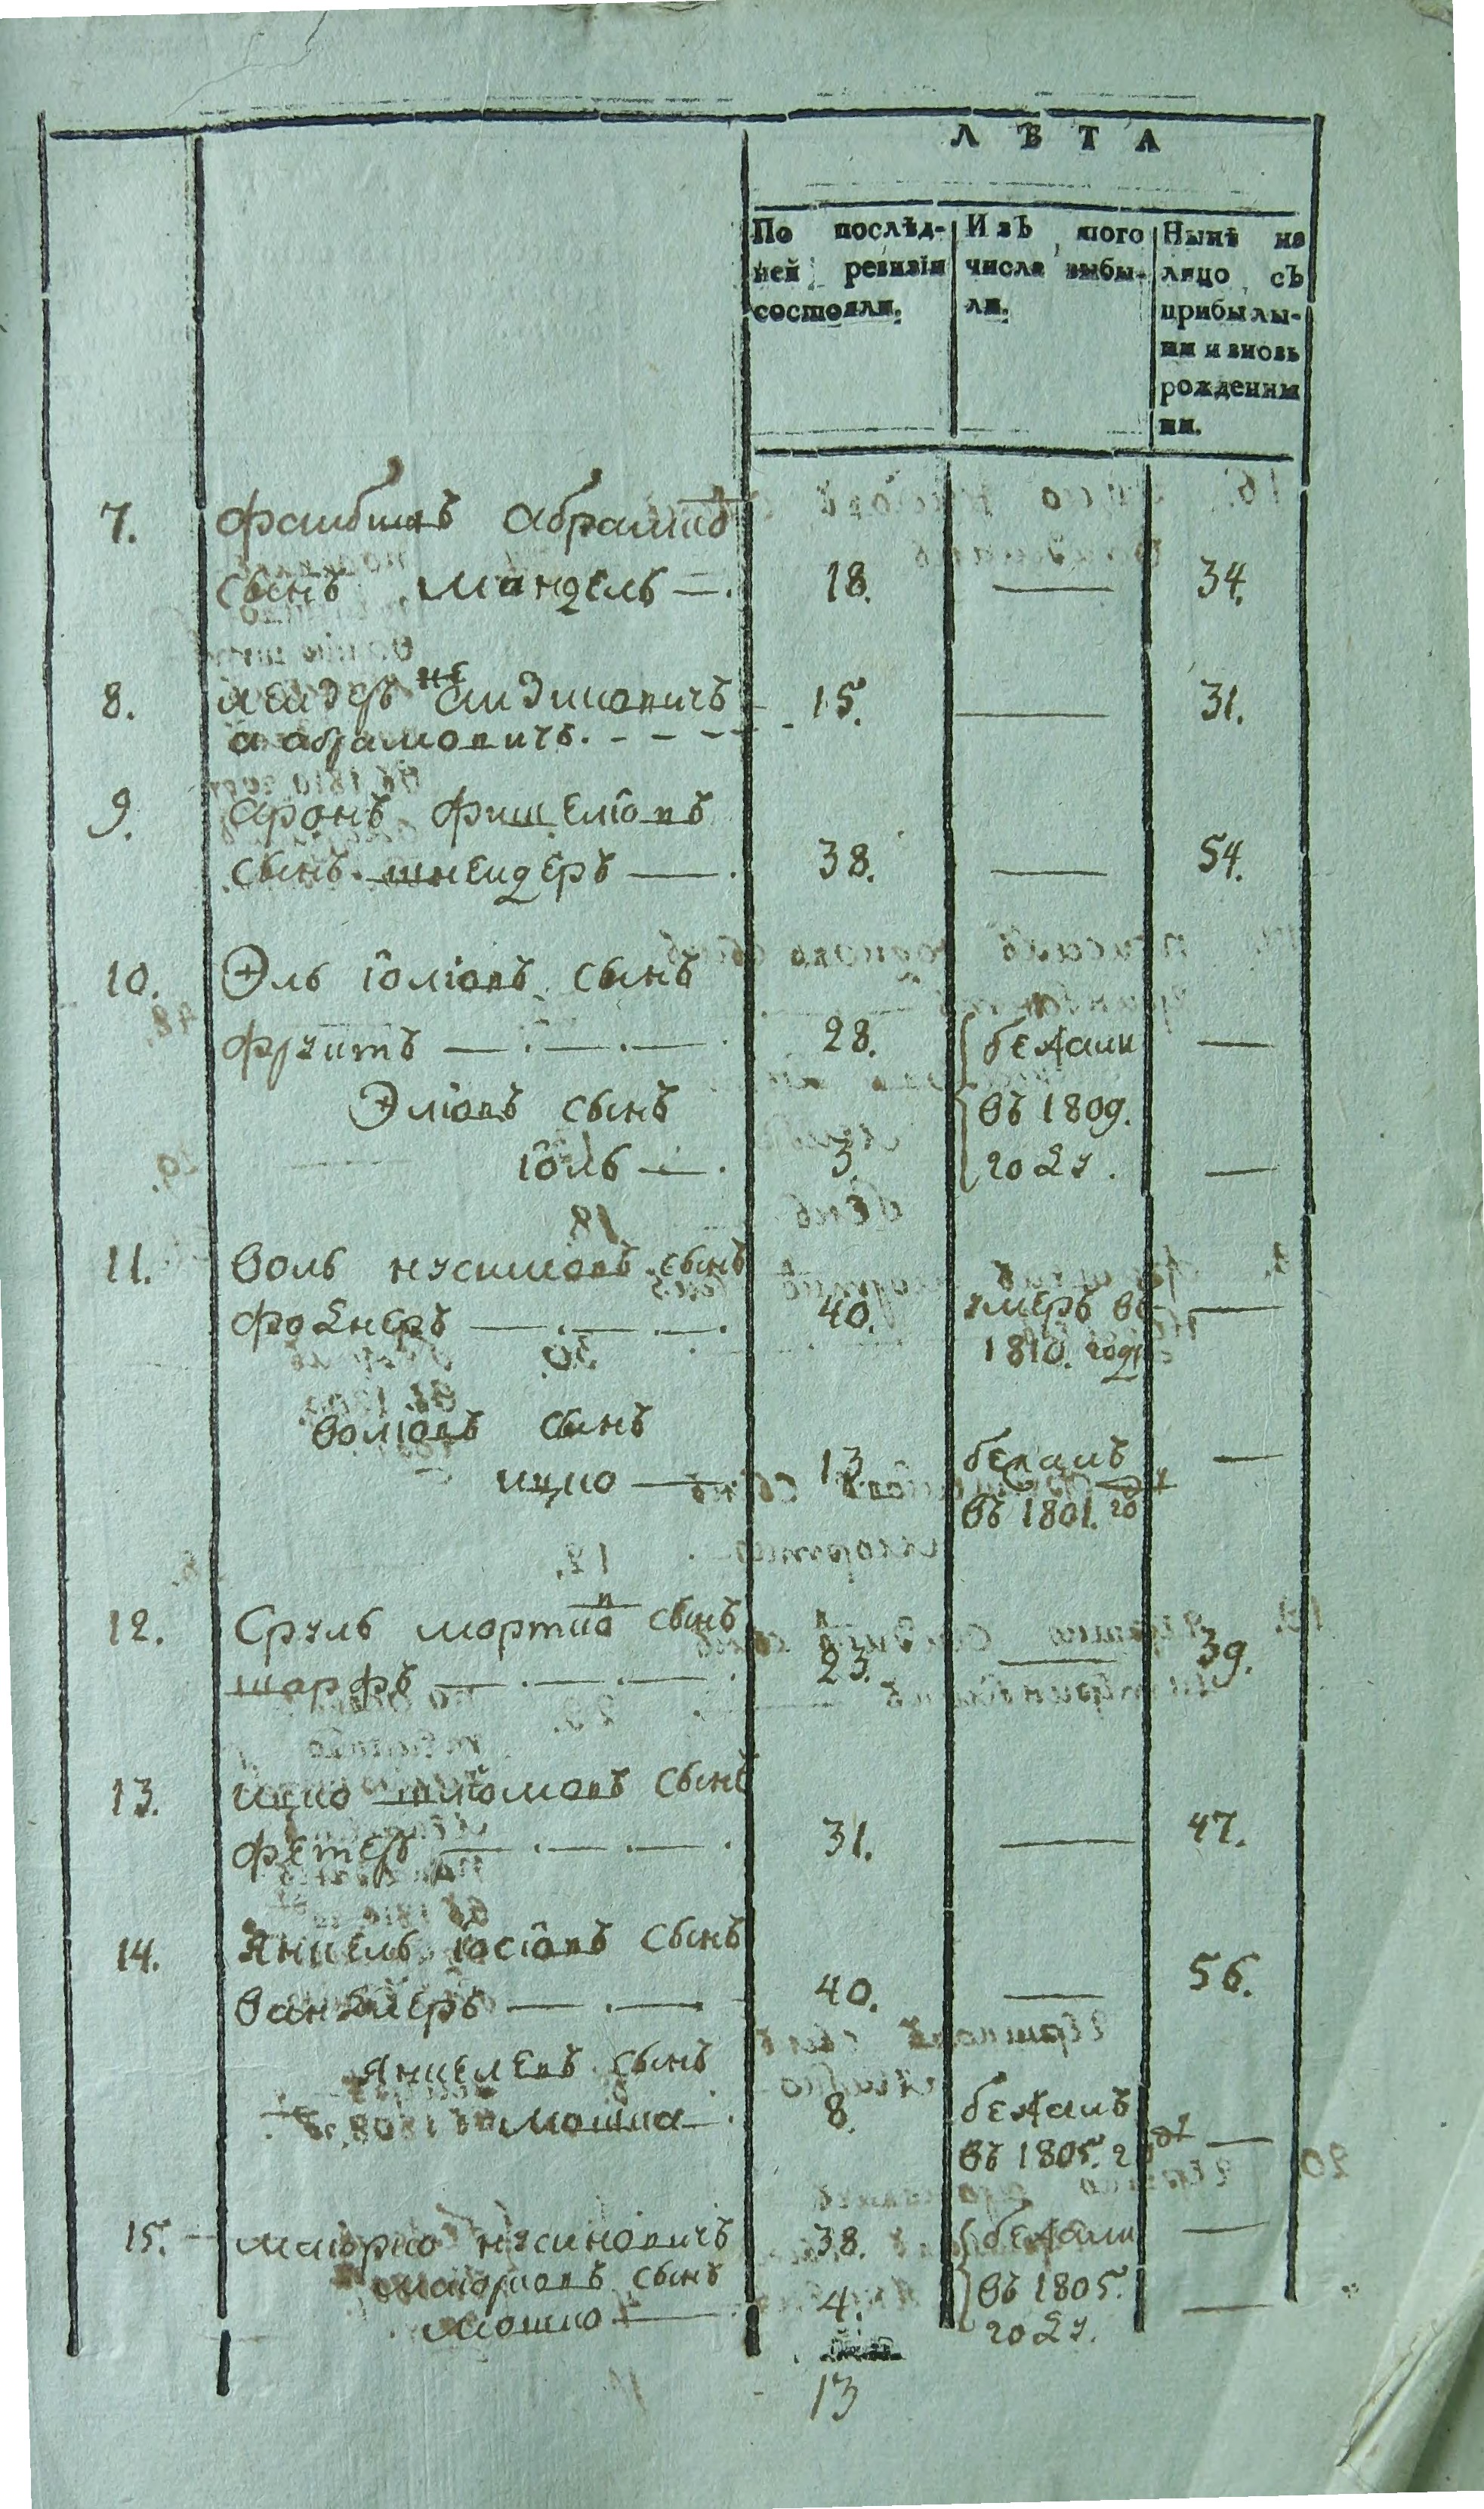 ЛѢТА
По послѣд-
ней ревизіи
состояли.
Изъ того
числа выбы-
ли.
Нынѣ на
лицо съ
прибылы-
ми и вновь
рожденны
ми.
7. Фаибишъ Абрамовъ
сынъ Мандель — . 18. — 34.
8. Леизеръ не Аизиковичъ
а Абрамовичъ. - - - - 15. — 31.
9. Аронъ Фишеліовъ
сынъ Шнеидеръ — . 38. — 54.
10. Эль Іоліовъ сынъ
28. бежали —
Эліовъ сынъ въ 1809.
Іоль — . 3. году. —
11. Воль Нусимовъ сынъ
Фоднеръ — . — . — . 40. умеръ въ —
1810. году
Воліовъ сынъ
Ицко — 13 бежалъ —
въ 1801. году
12. Сруль Мортковъ сынъ
Шарфъ — . — . — . 23. — 39.
13. Ицко Шліомовъ сынъ
Фетеръ — . — . — . 31. — 47.
14. Янкель Іосіовъ сынъ
— . — . 40. — 56.
Янкелевъ сынъ
Мошка — . 8. бежалъ
въ 1805. году —
15. Маіорко Нусиновичъ 38. бежали —
Маіорковъ сынъ въ 1805.
Мошко — 4. году. —
13